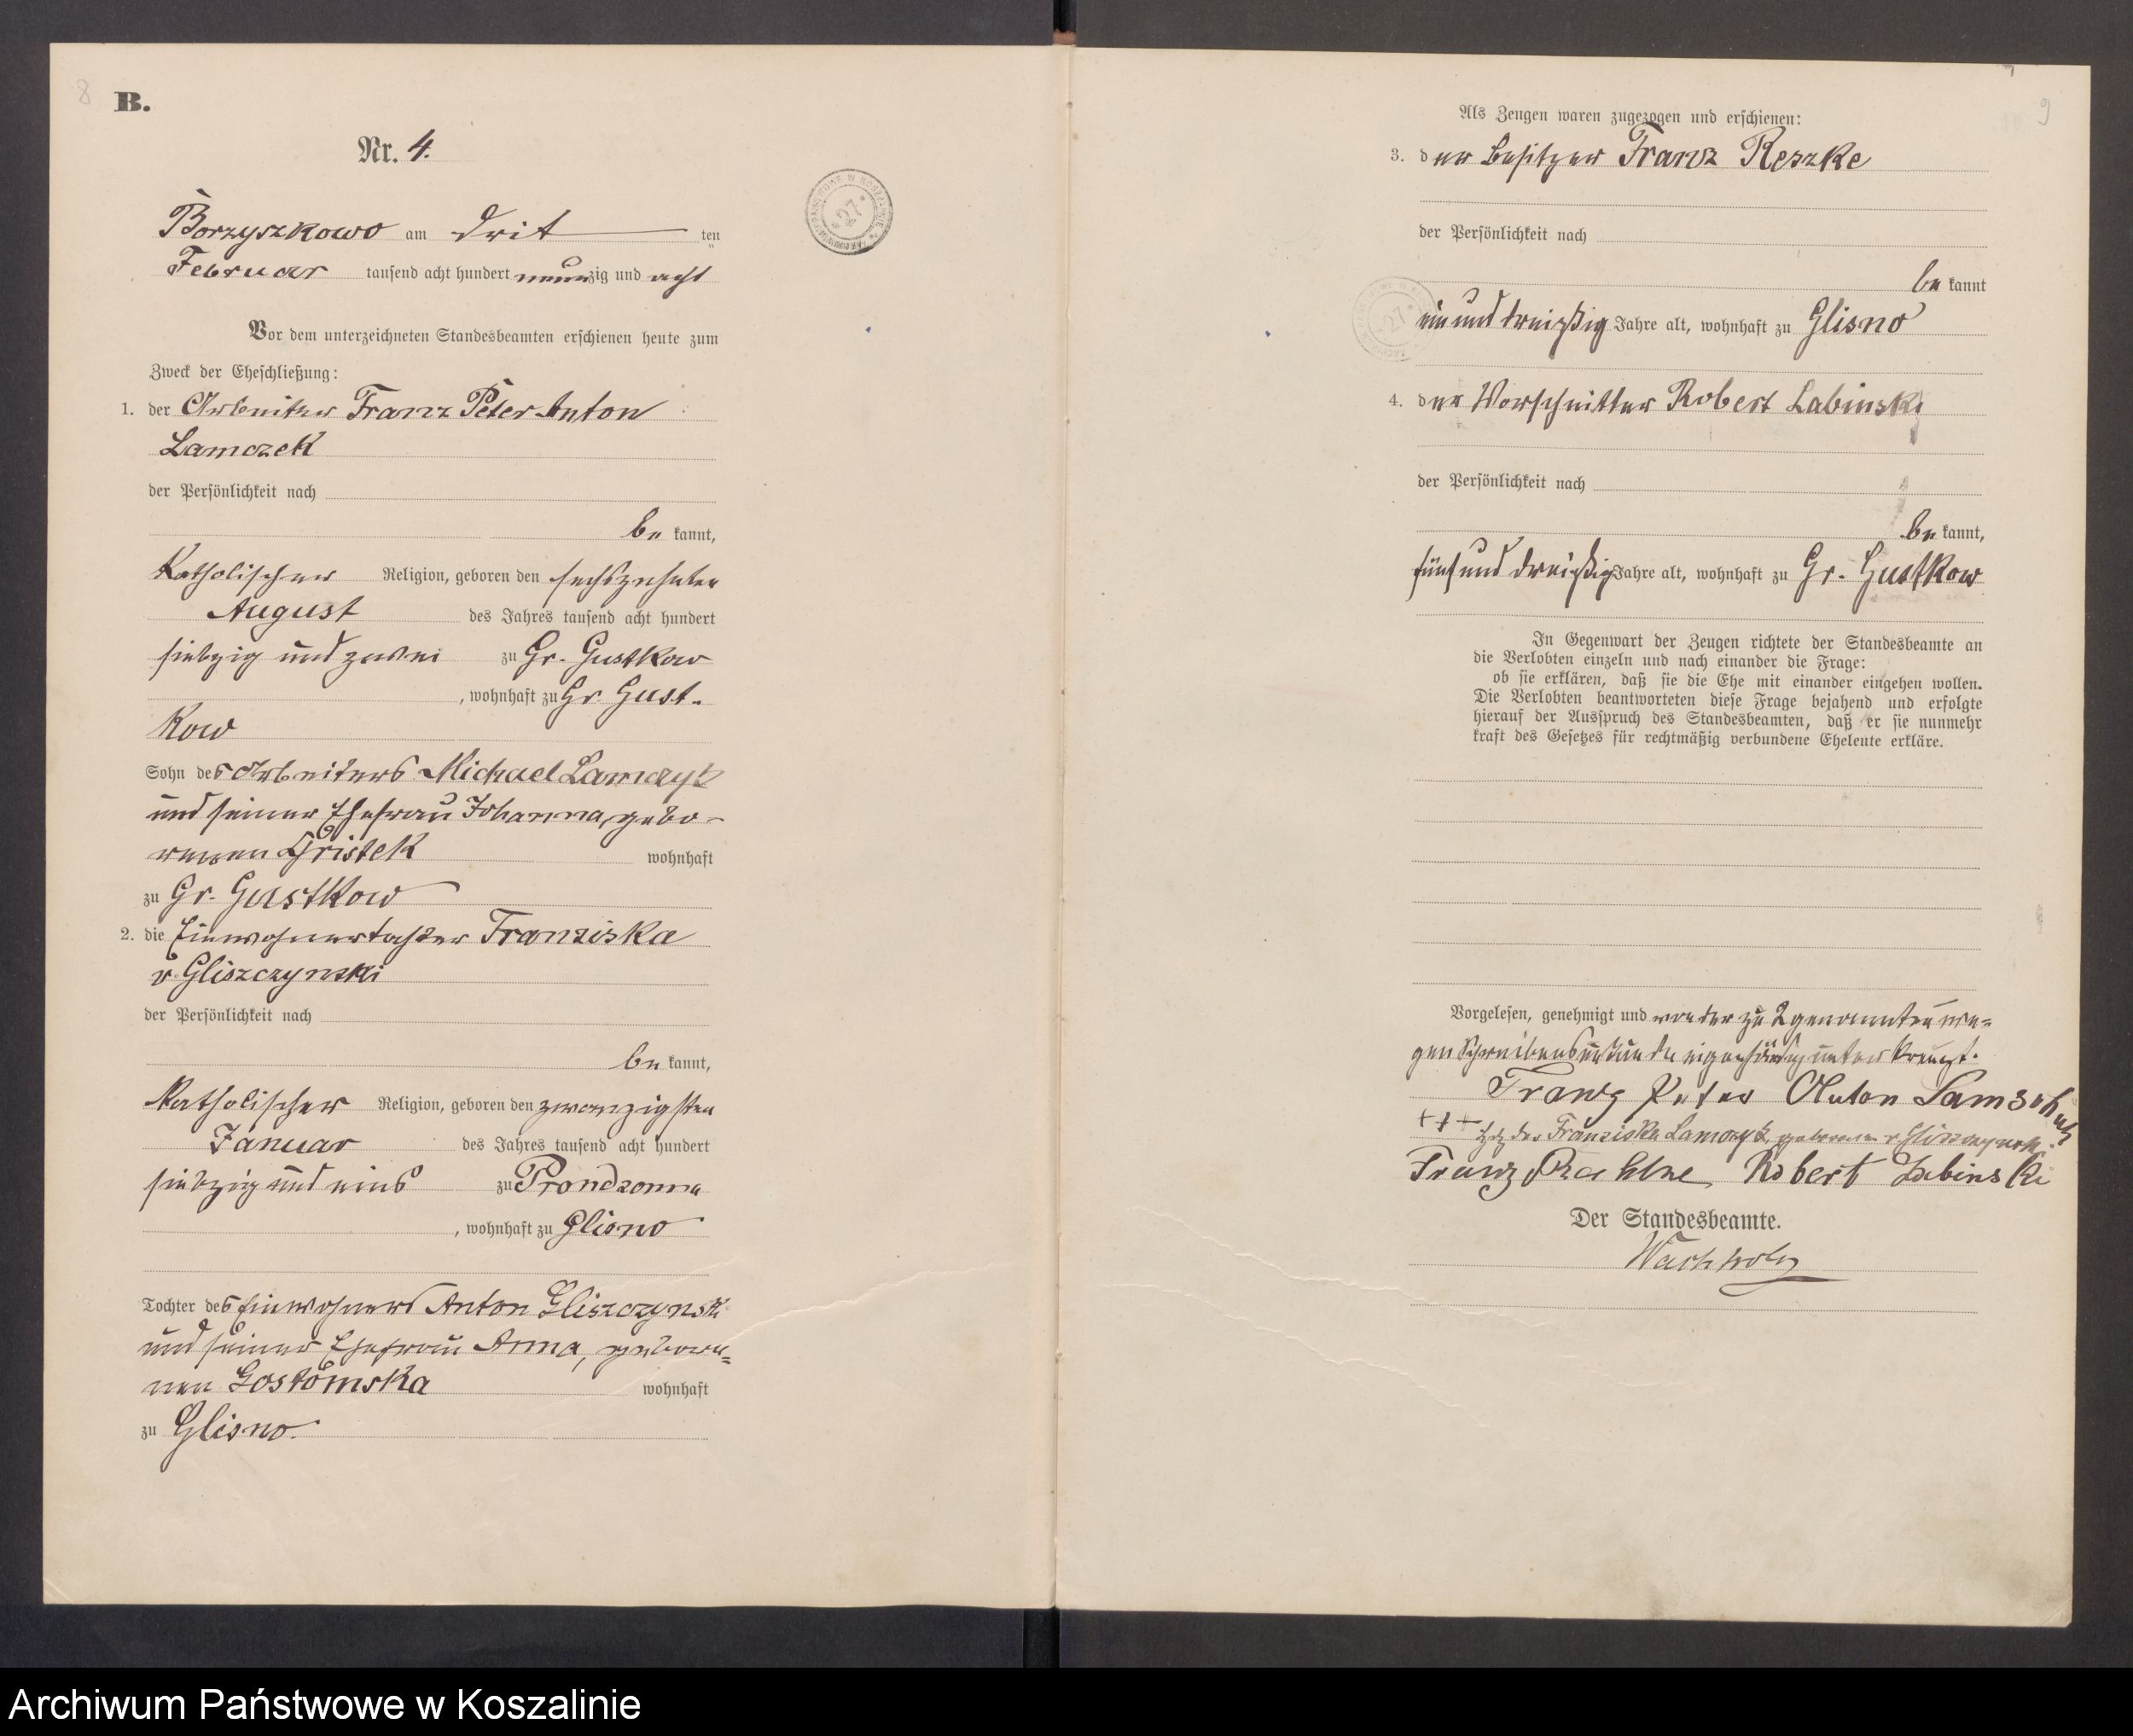 8
B.
Nr. 4.
Borzyszkowo am dritten
Februar tausend acht hundert neunzig und acht
Vor dem unterzeichneten Standesbeamten erschienen heute zum
Zweck der Eheschließung:
1. der Arbeiter Franz Peter Anton
Lamczek
der Persönlichkeit nach
be kannt,
Katholischer Religion, geboren den sechszehnten
August des Jahres tausend acht hundert
siebzig und zwei zu Gr. Gustkow
, wohnhaft zu Gr. Gust-
kow
Sohn des Arbeiters Michael Lamczyk
und seiner Ehefrau Johanna, gebo-
renen Gristek wohnhaft
zu Gr. Gustkow
2. die Einwohnertochter Franziska
v. Gliszczynski
der Persönlichkeit nach
be kannt,
Katholischer Religion, geboren den zwanzigsten
Januar des Jahres tausend acht hundert
siebzig und eins zu Prondzonna
, wohnhaft zu Glisno
Tochter des Einwohners Anton Gliszczynski
und seiner Ehefrau Anna, gebore=
nen Gostomska wohnhaft
zu Glisno.
27
9
Als Zeugen waren zugezogen und erschienen:
3. der Besitzer Franz Reszke
der Persönlichkeit nach
be kannt
ein und dreißig Jahre alt, wohnhaft zu Glisno
27
4. der Vorschnitter Robert Labinski
der Persönlichkeit nach
be kannt,
fünf und dreißig Jahre alt, wohnhaft zu Gr. Gustkow
In Gegenwart der Zeugen richtete der Standesbeamte an
die Verlobten einzeln und nach einander die Frage:
ob sie erklären, daß sie die Ehe mit einander eingehen wollen.
Die Verlobten beantworteten diese Frage bejahend und erfolgte
hierauf der Ausspruch des Standesbeamten, daß er sie nunmehr
kraft des Gesetzes für rechtmäßig verbundene Eheleute erkläre.
Vorgelesen, genehmigt und von der zu 2 genannten we=
gen Schreibensunkunde eigenhändig unterkreuzt.
Franz Peter Anton
+++ Hdz der Franziska Lamczyk, geborenen v. Gliszczynski.
Franz Robert Labinski
Der Standesbeamte.
Wachholz
Archiwum Państwowe w Koszalinie